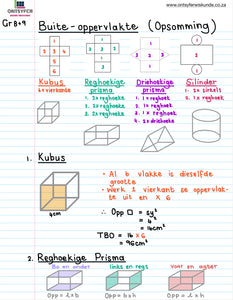 ONTSYFER
www.ontsyferwiskunde.co.za
Gr 8+9
Buite-oppervlakte (Opsomming)
1
5 2 3 4
6
1 2 3
1
2
3
Kubus
6 x vierkante
Reghoekige prisma
1. 2x reghoek
2. 2x reghoek
3. 2x reghoek
Driehoekige prisma
1. 1x reghoek
2. 1x reghoek
3. 1x reghoek
4. 2x driehoeke
Silinder
1. 2x sirkels
2. 1x reghoek
1. Kubus
• Al 6 vlakke is dieselfde grootte
• Werk 1 vierkant se oppervlakte uit en x 6
4cm
∴ Opp □ = sy²
= 4²
= 16cm²
TBO = 16 x 6
= 96cm²
2. Reghoekige Prisma
Bo en onder
links en regs
voor en agter
Opp = l x b
Opp = b x h
Opp = l x h